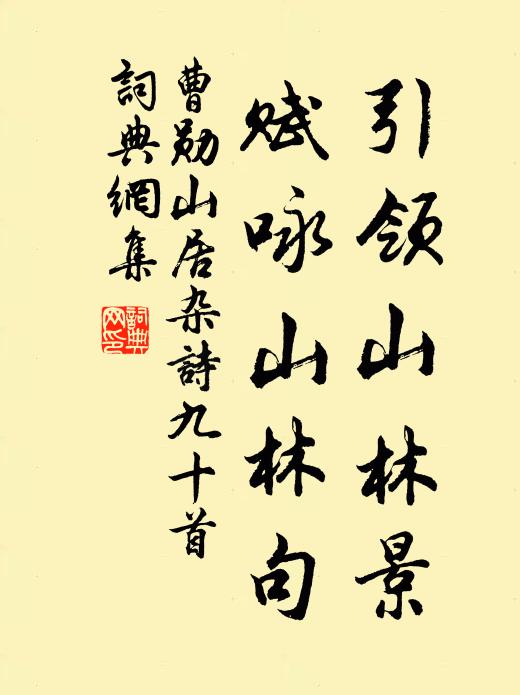 引领山林景
赋咏山林句
曹勋山居杂詩九十首
詞典網集
詞典
网印